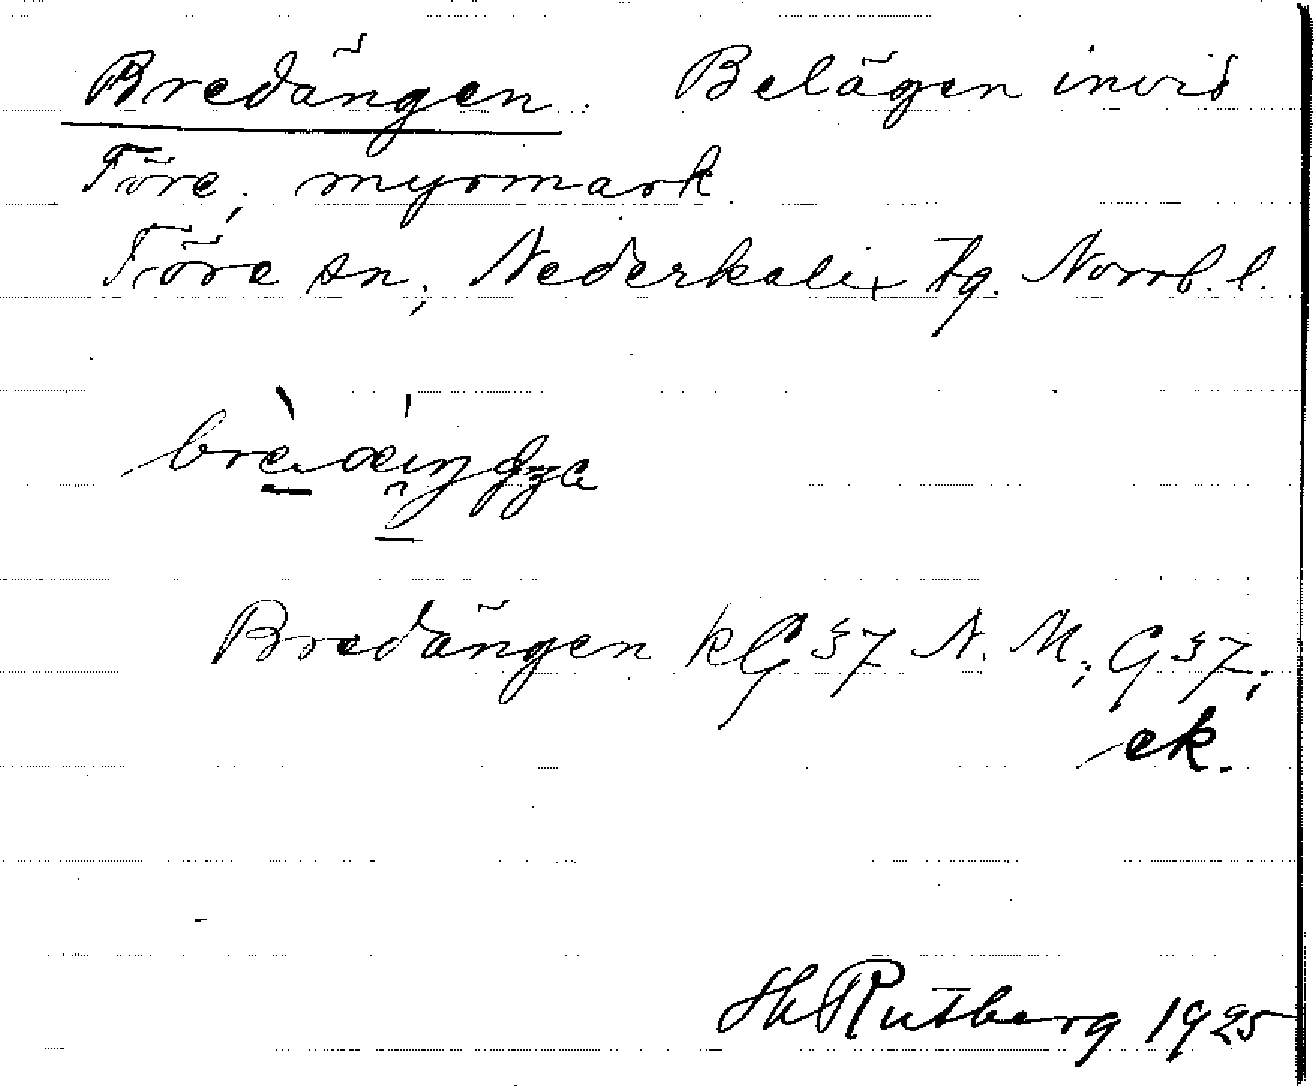 Bredängen. Belägen invid
Töre, myrmark.
Töre sn, Nederkalix tg. Norrb. l.
Bredängen kG 37 N. M; G 37;
ek.
Hh Rutberg 1925